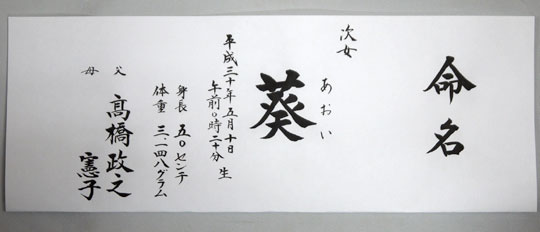 命名
次女
あおい
葵
平成三十年五月十日
午前〇時二十分 生
身長 五〇センチ
体重 三、一四八グラム
父 髙橋政之
母 憲子